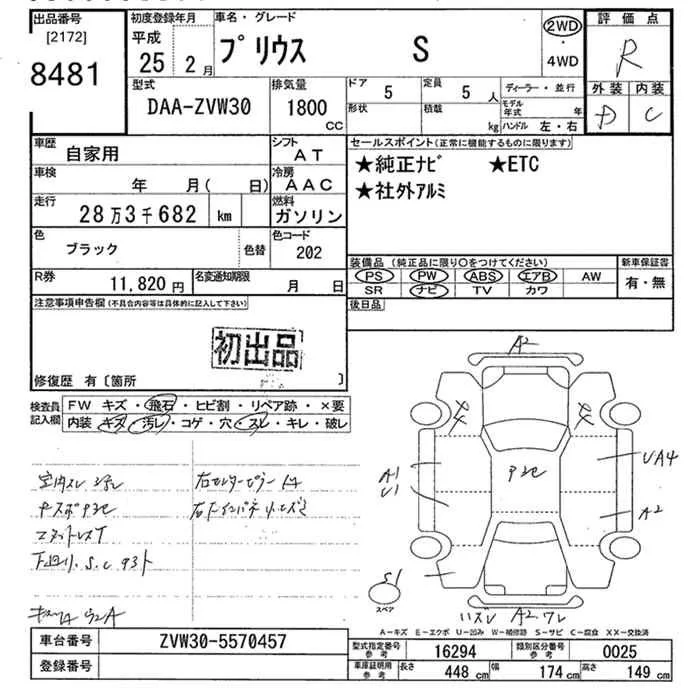 出品番号 初度登録年月 車名・グレード 評価点
[2172] 平成 プリウス S 2WD
8481 25 2月 ・ R
4WD
型式 排気量 ドア 5 定員 5人 ディーラー・並行 外装 内装
DAA-ZVW30 1800 CC 形状 積載 kg モデル年式 年 D C
ハンドル 左・右
車歴 自家用 シフト AT セールスポイント(正常に機能するものに限ります)
車検 年 月( 日) 冷房 AAC ★純正ナビ ★ETC
走行 28万3千682 km 燃料 ガソリン ★社外アルミ
色 ブラック 色替 色コード 202
装備品 (純正品に限り○をつけてください) 新車保証書
R券 11,820円 名変通知期限 月 日 PS PW ABS エアB AW 有・無
SR ナビ TV カワ
注意事項申告欄(不具合内容等は具体的に記入して下さい) 後日品
初出品
修復歴 有〔箇所 〕
検査員記入欄 FW キズ・飛石・ヒビ割・リペア跡・×要
内装・キズ・汚レ・コゲ・穴・スレ・キレ・破レ
A2
A1
U1
UA4
A2
S1
スペア
A2 ワレ
A-キズ E-エクボ U-凹み W-補修跡 S-サビ C-腐食 XX-交換済
車台番号 ZVW30-5570457 型式指定番号 参考 16294 類別区分番号 参考 0025
登録番号 車庫証明用 参考 長さ 448 cm 幅 174 cm 高さ 149 cm